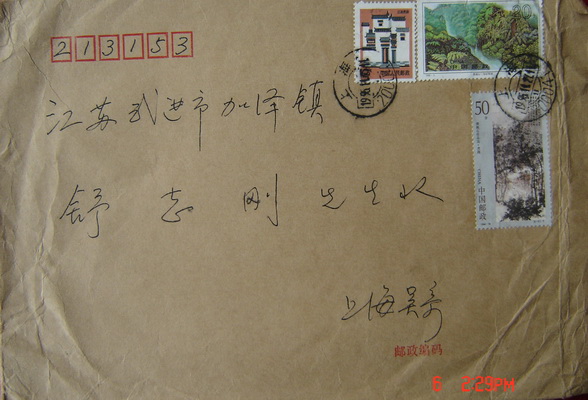 213153
江苏武进市加泽镇
舒志刚先生收
上海吴
邮政编码
上海
50
中国邮政
6 2:29PM